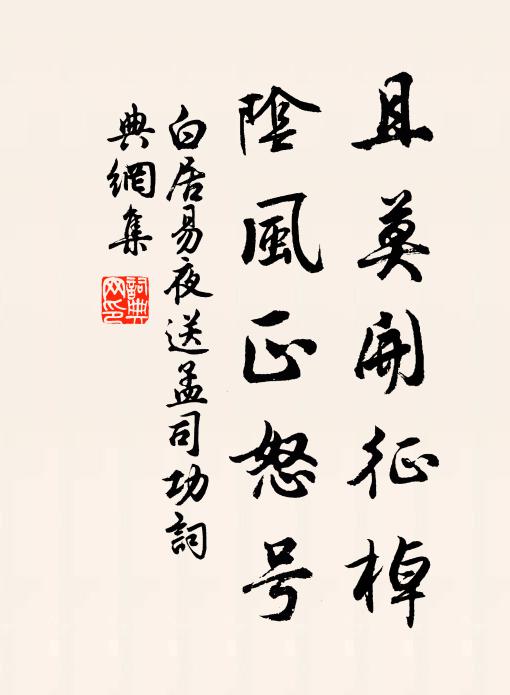 且莫開征棹
陰風正怒号
白居易夜送孟司功詞
典網集
詞典
网印